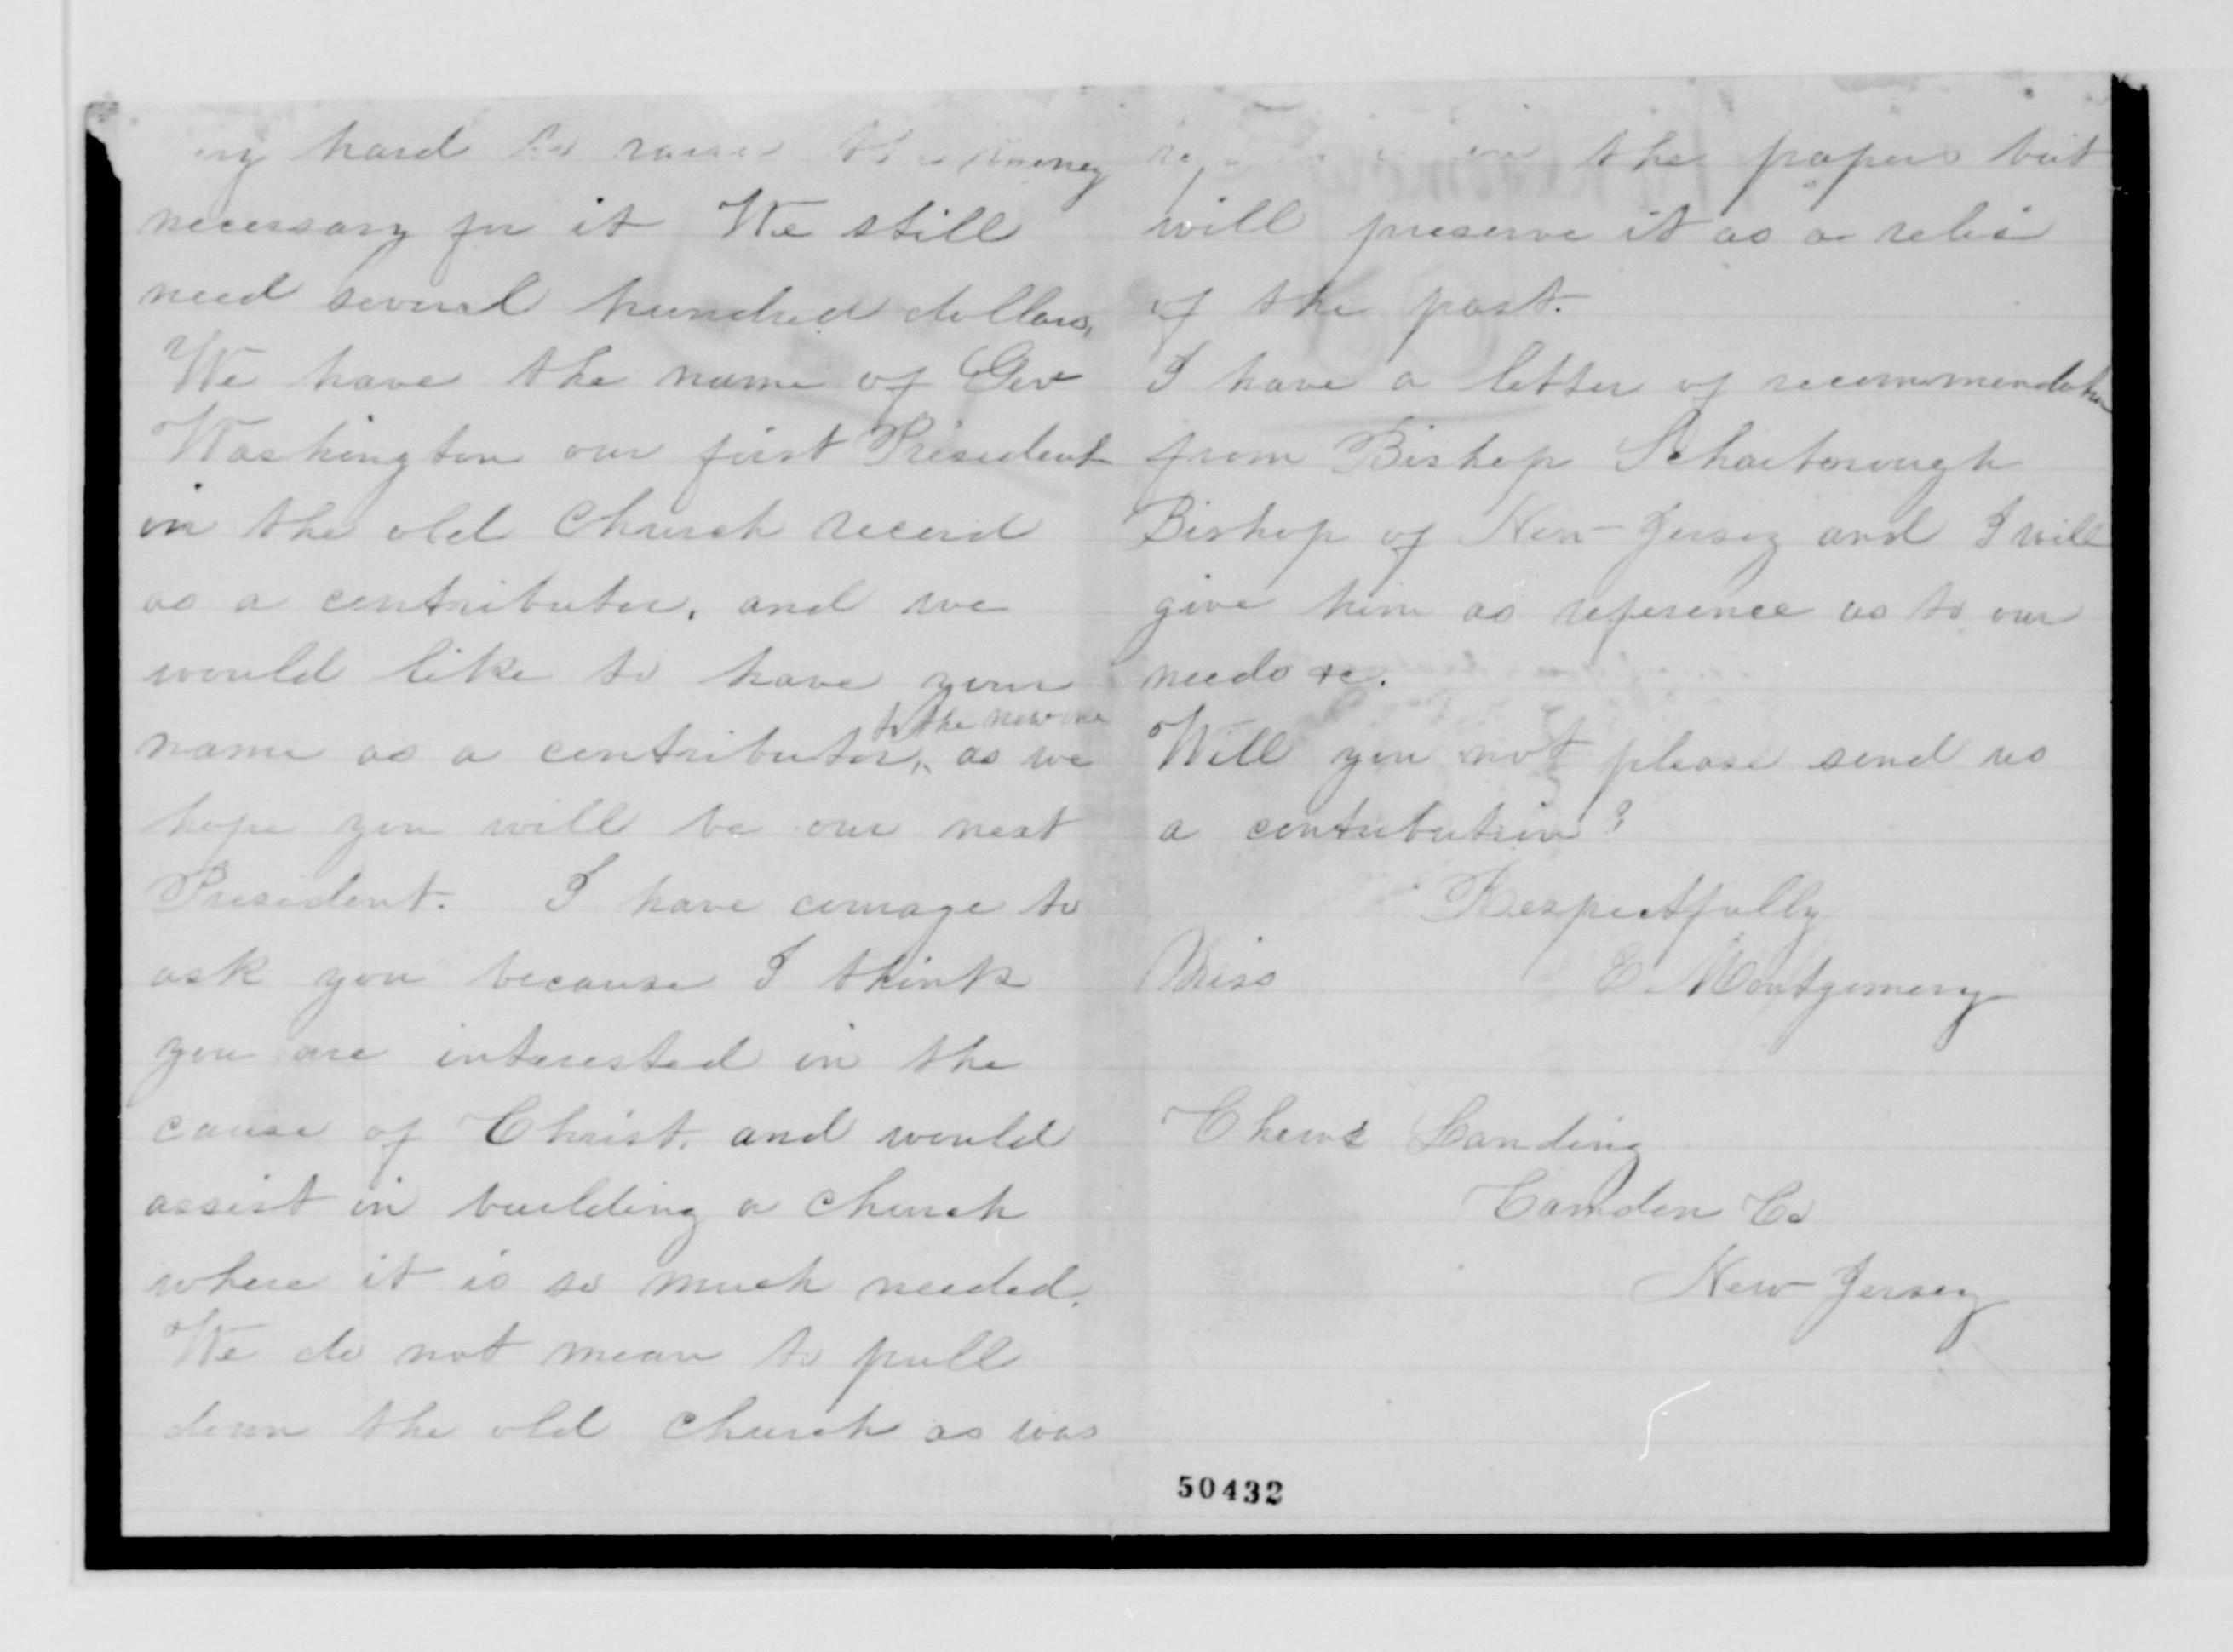 hard to raise the money
necessary for it We still
need several hundred dollars,
We have the name of Geo
Washington our first President
in the old Church record
as a contributor, and we
would like to have your
to the new one
name as a contributor, as we
hope you will be our next
President. I have courage to
ask you because I think
you are interested in the
cause of Christ. and would
assist in building a church
where it is so much needed.
We do not mean to pull
down the old church as was
in the papers but
will preserve it as a relic
of the past.
I have a letter of recommendation
from Bishop Scharborough
Bishop of New Jersey and I will
give him as reference as to our
needs &c.
Will you not please send us
a contribution?
Respectfully
Miss E. Montgomery
Chews Landing
Camden Co
New Jersey
50432